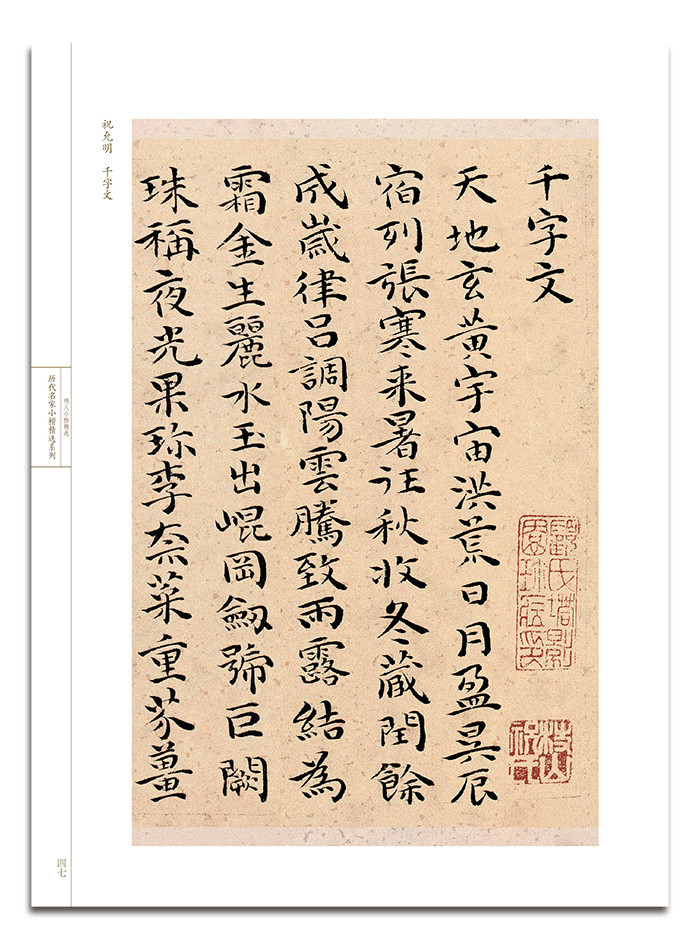 千字文
天地玄黄宇宙洪荒日月盈昃辰
宿列張寒来暑往秋收冬蔵閏餘
成歲律呂調陽雲騰致雨露結為
霜金生麗水玉出崐岡劔號巨闕
珠稱夜光果珎李柰菜重芥薑
祝允明 千字文
明人小楷精选
历代名家小楷精选系列
四七